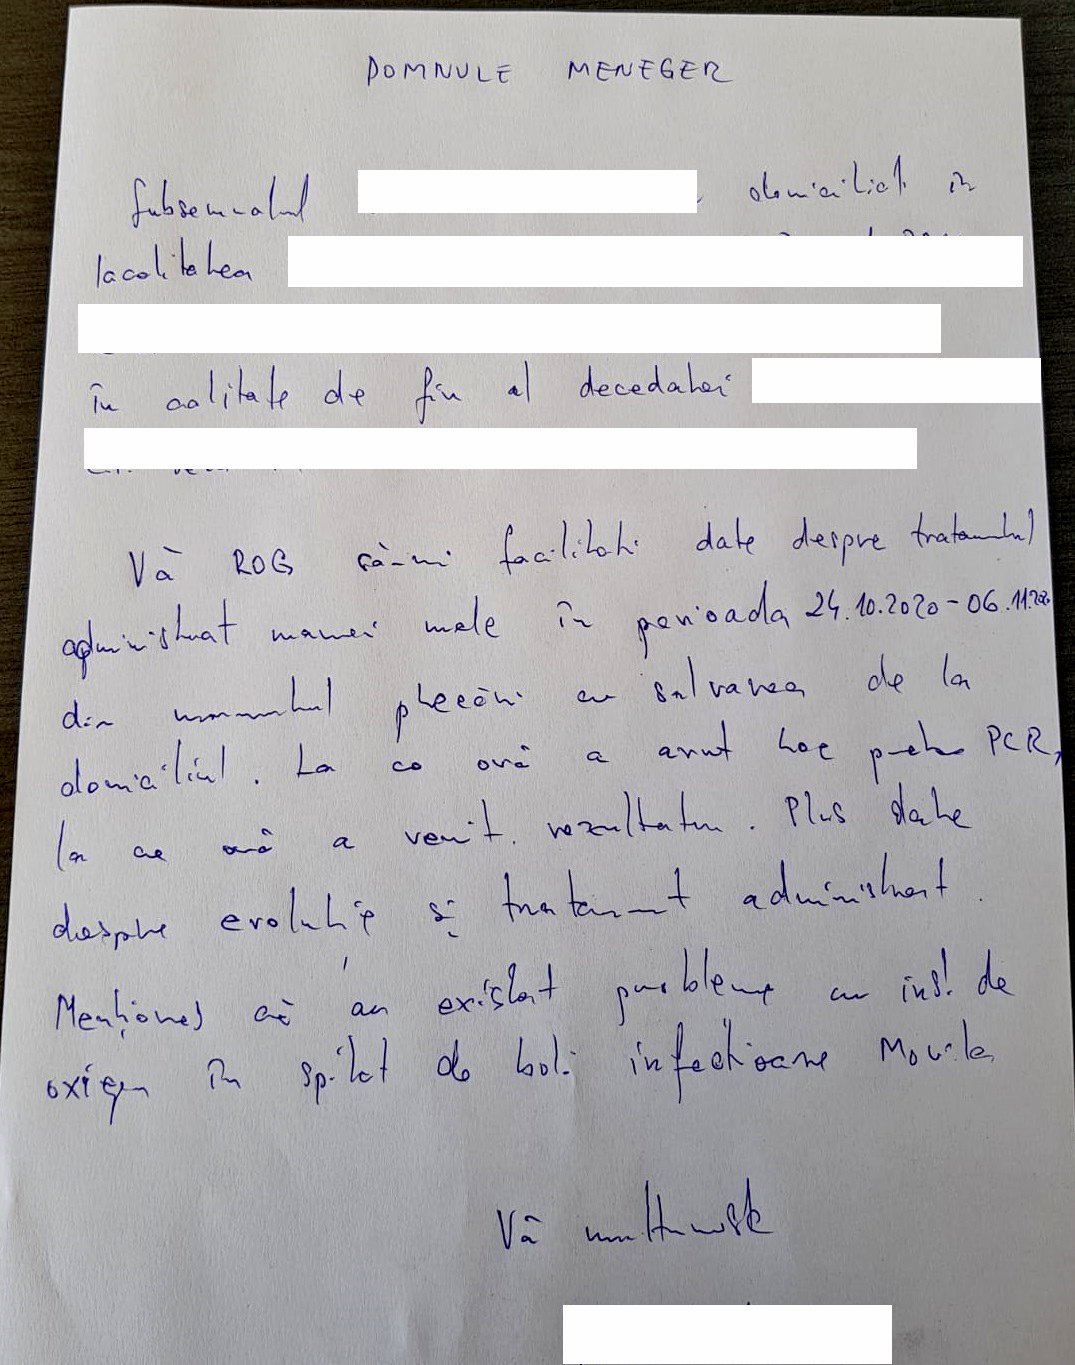 DOMNULE MENEGER
Subsemnatul domiciliat în
localitatea
în calitate de fiu al decedatei
Vă ROG să-mi facilitati date despre tratamentul
administrat mamei mele în perioada 24.10.2020-06.11.2020
din momentul plecării cu salvarea de la
domiciliul. La ce oră a avut loc proba PCR,
la ce oră a venit rezultatul. Plus date
despre evoluție și tratament administrat.
Menționez că au existat probleme cu inst. de
oxigen în spital de boli infecțioase Movila
Vă multumesc